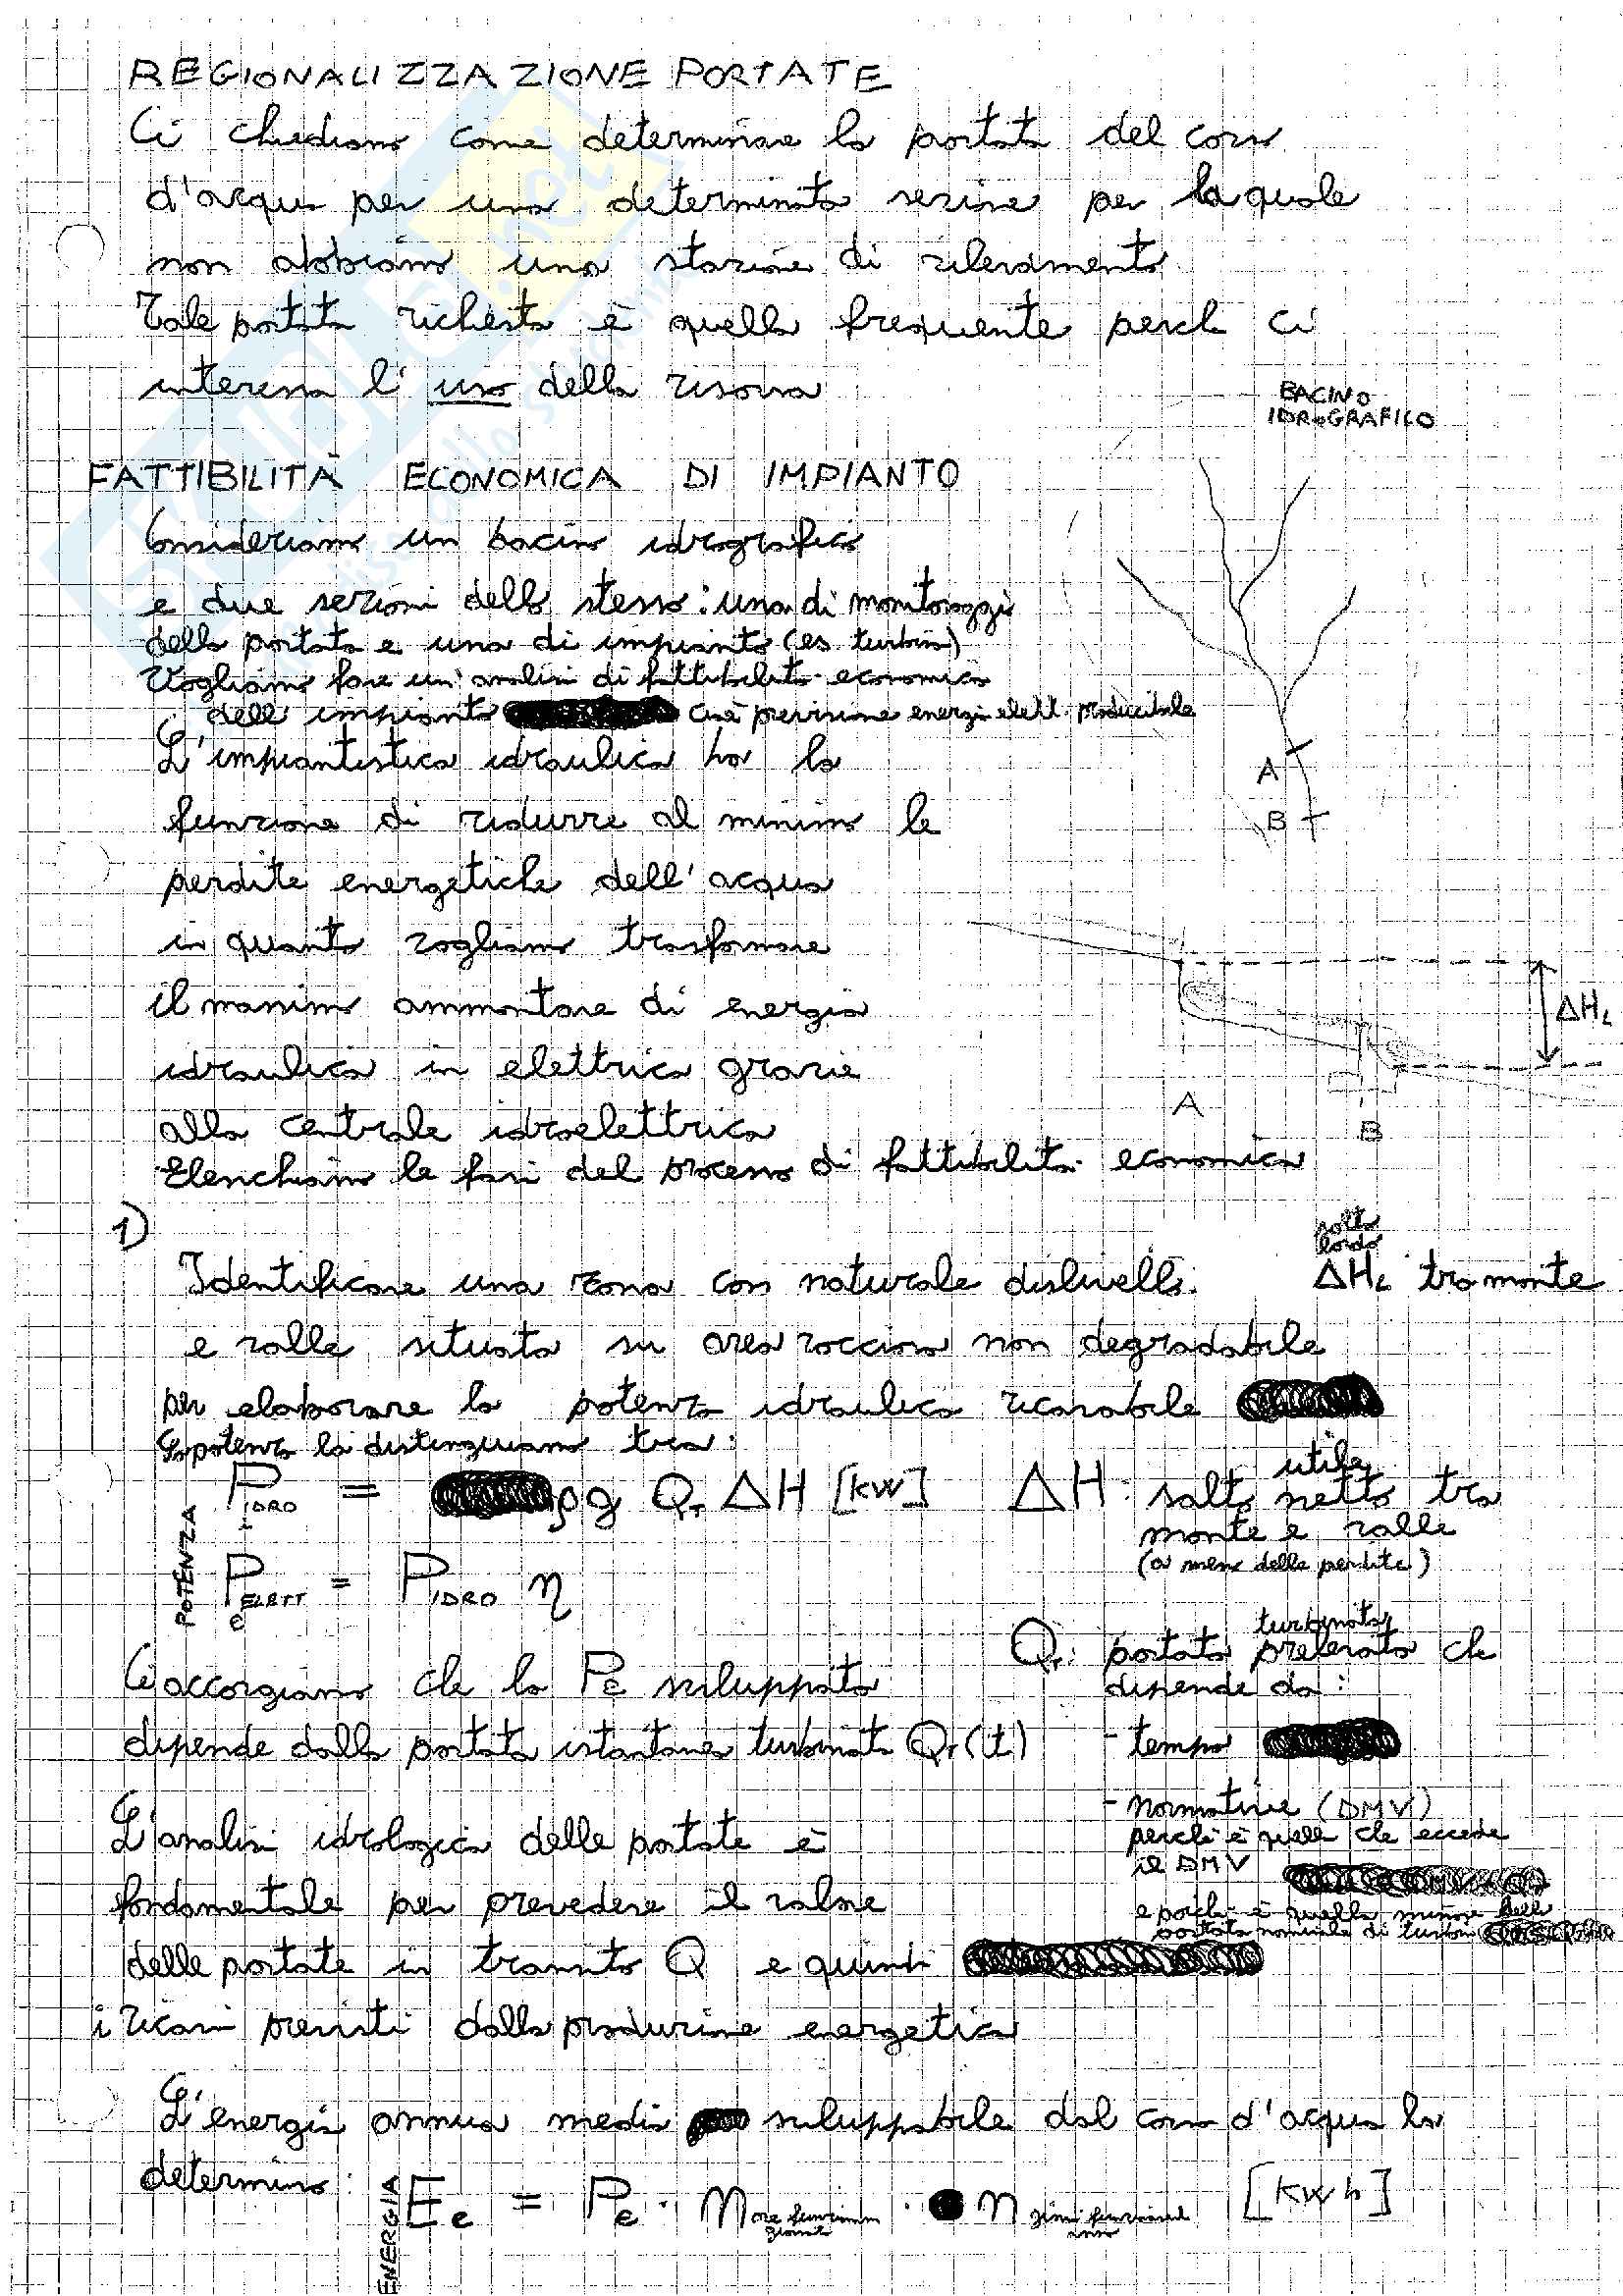 REGIONALIZZAZIONE PORTATE
Ci chiediamo come determinare la portata del corso
d'acqua per una determinata sezione per la quale
non abbiamo una stazione di rilevamento
Tale portata richiesta è quella frequente perché ci
interessa l'uso della risorsa
BACINO
IDROGRAFICO
FATTIBILITÀ ECONOMICA DI IMPIANTO
Consideriamo un bacino idrografico
e due sezioni dello stesso: una di monitoraggio
della portata e una di impianto (es turbina)
Vogliamo fare un'analisi di fattibilità economica
dell'impianto cioè previsione energia elett. producibile
L'impiantistica idraulica ha la
funzione di ridurre al minimo le
perdite energetiche dell'acqua
in quanto vogliamo trasformare
il massimo ammontare di energia
idraulica in elettrica grazie
alla centrale idroelettrica
A
B
ΔHL
A
B
Elenchiamo le fasi del processo di fattibilità economica
1)
salto
lordo
Identificare una zona con naturale dislivello ΔHL tra monte
e valle situata su area rocciosa non degradabile
per elaborare la potenza idraulica ricavabile
La potenza la distinguiamo tra:
POTENZA
PIDRO = ρg QT ΔH [KW]
PELETT = PIDRO η
e
ΔH: salto utile netto tra
monte e valle
(a meno delle perdite)
QT: portata turbinata prelevata che
dipende da:
- tempo
- normative (DMV)
perché è quella che eccede
il DMV
e poiché è quella minore della
portata nominale di turbina
Ci accorgiamo che la Pe sviluppata
dipende dalla portata istantanea turbinata QT(t)
L'analisi idrologica delle portate è
fondamentale per prevedere il valore
delle portate in transito Q e quindi
i ricavi previsti dalla produzione energetica
L'energia annua media sviluppabile dal corso d'acqua la
determino:
ENERGIA
Ee = Pe · n ore funzionam giornal · n giorni funzional anno [KWh]